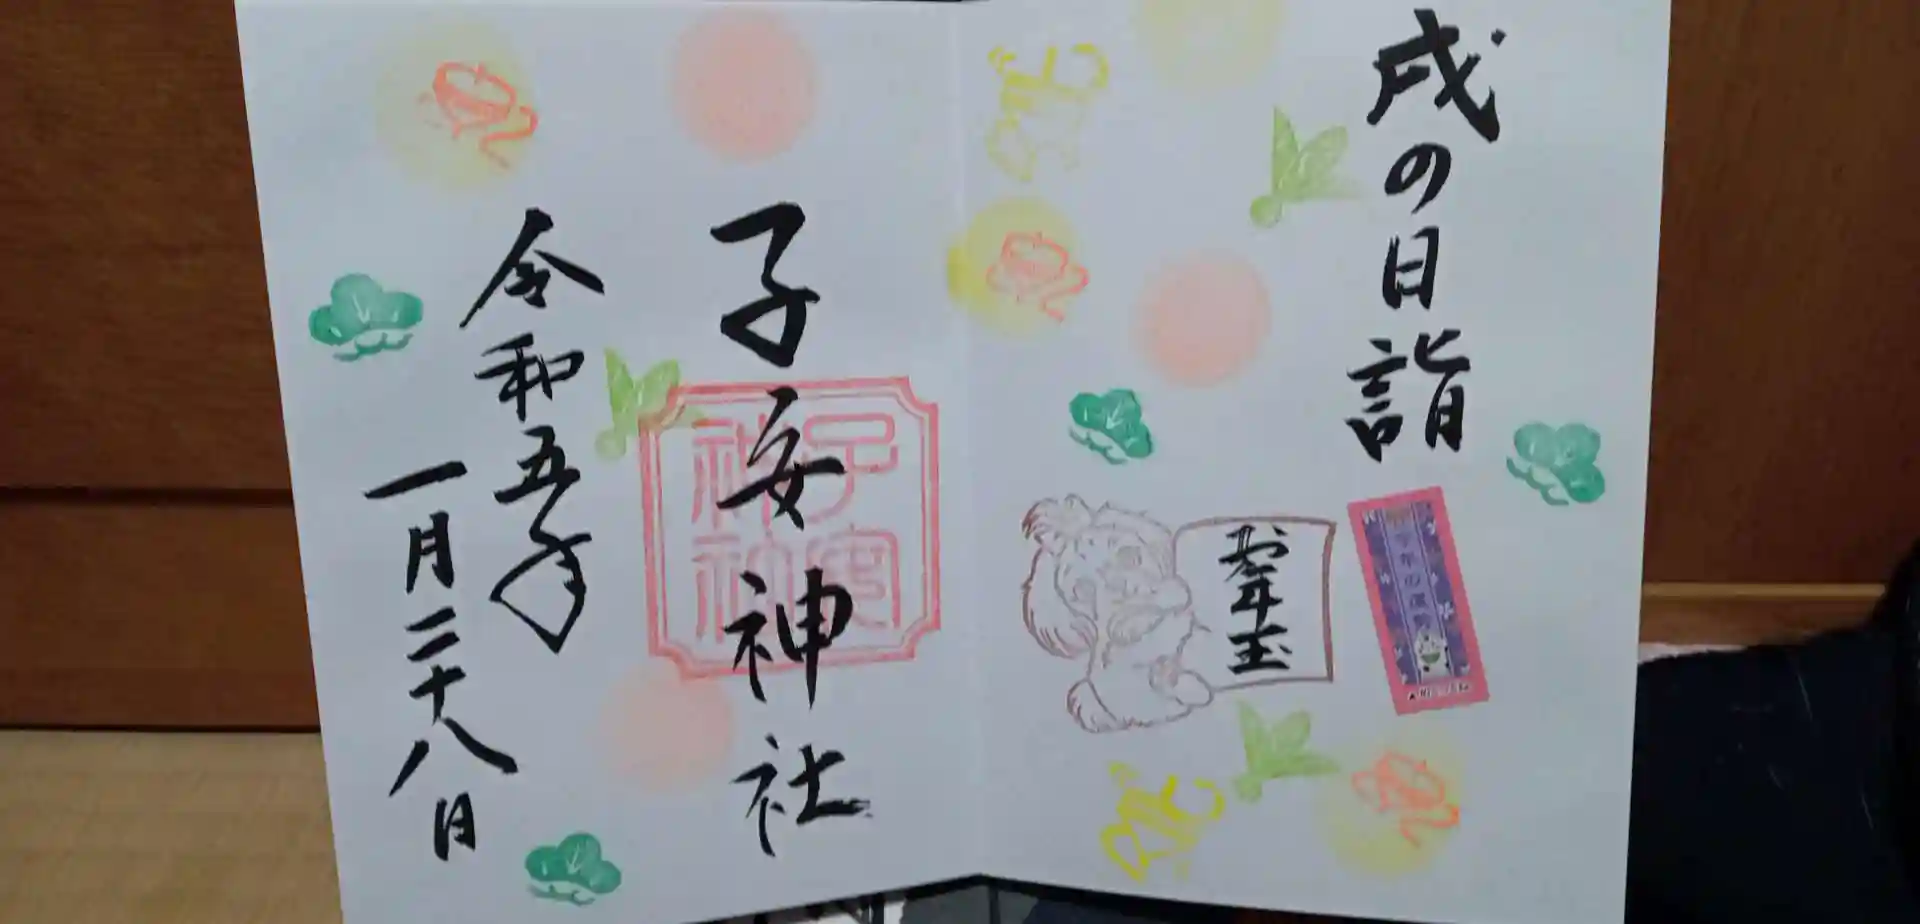 戌の日詣
お年玉
子安神社
子安神社
令和五年
一月二十八日